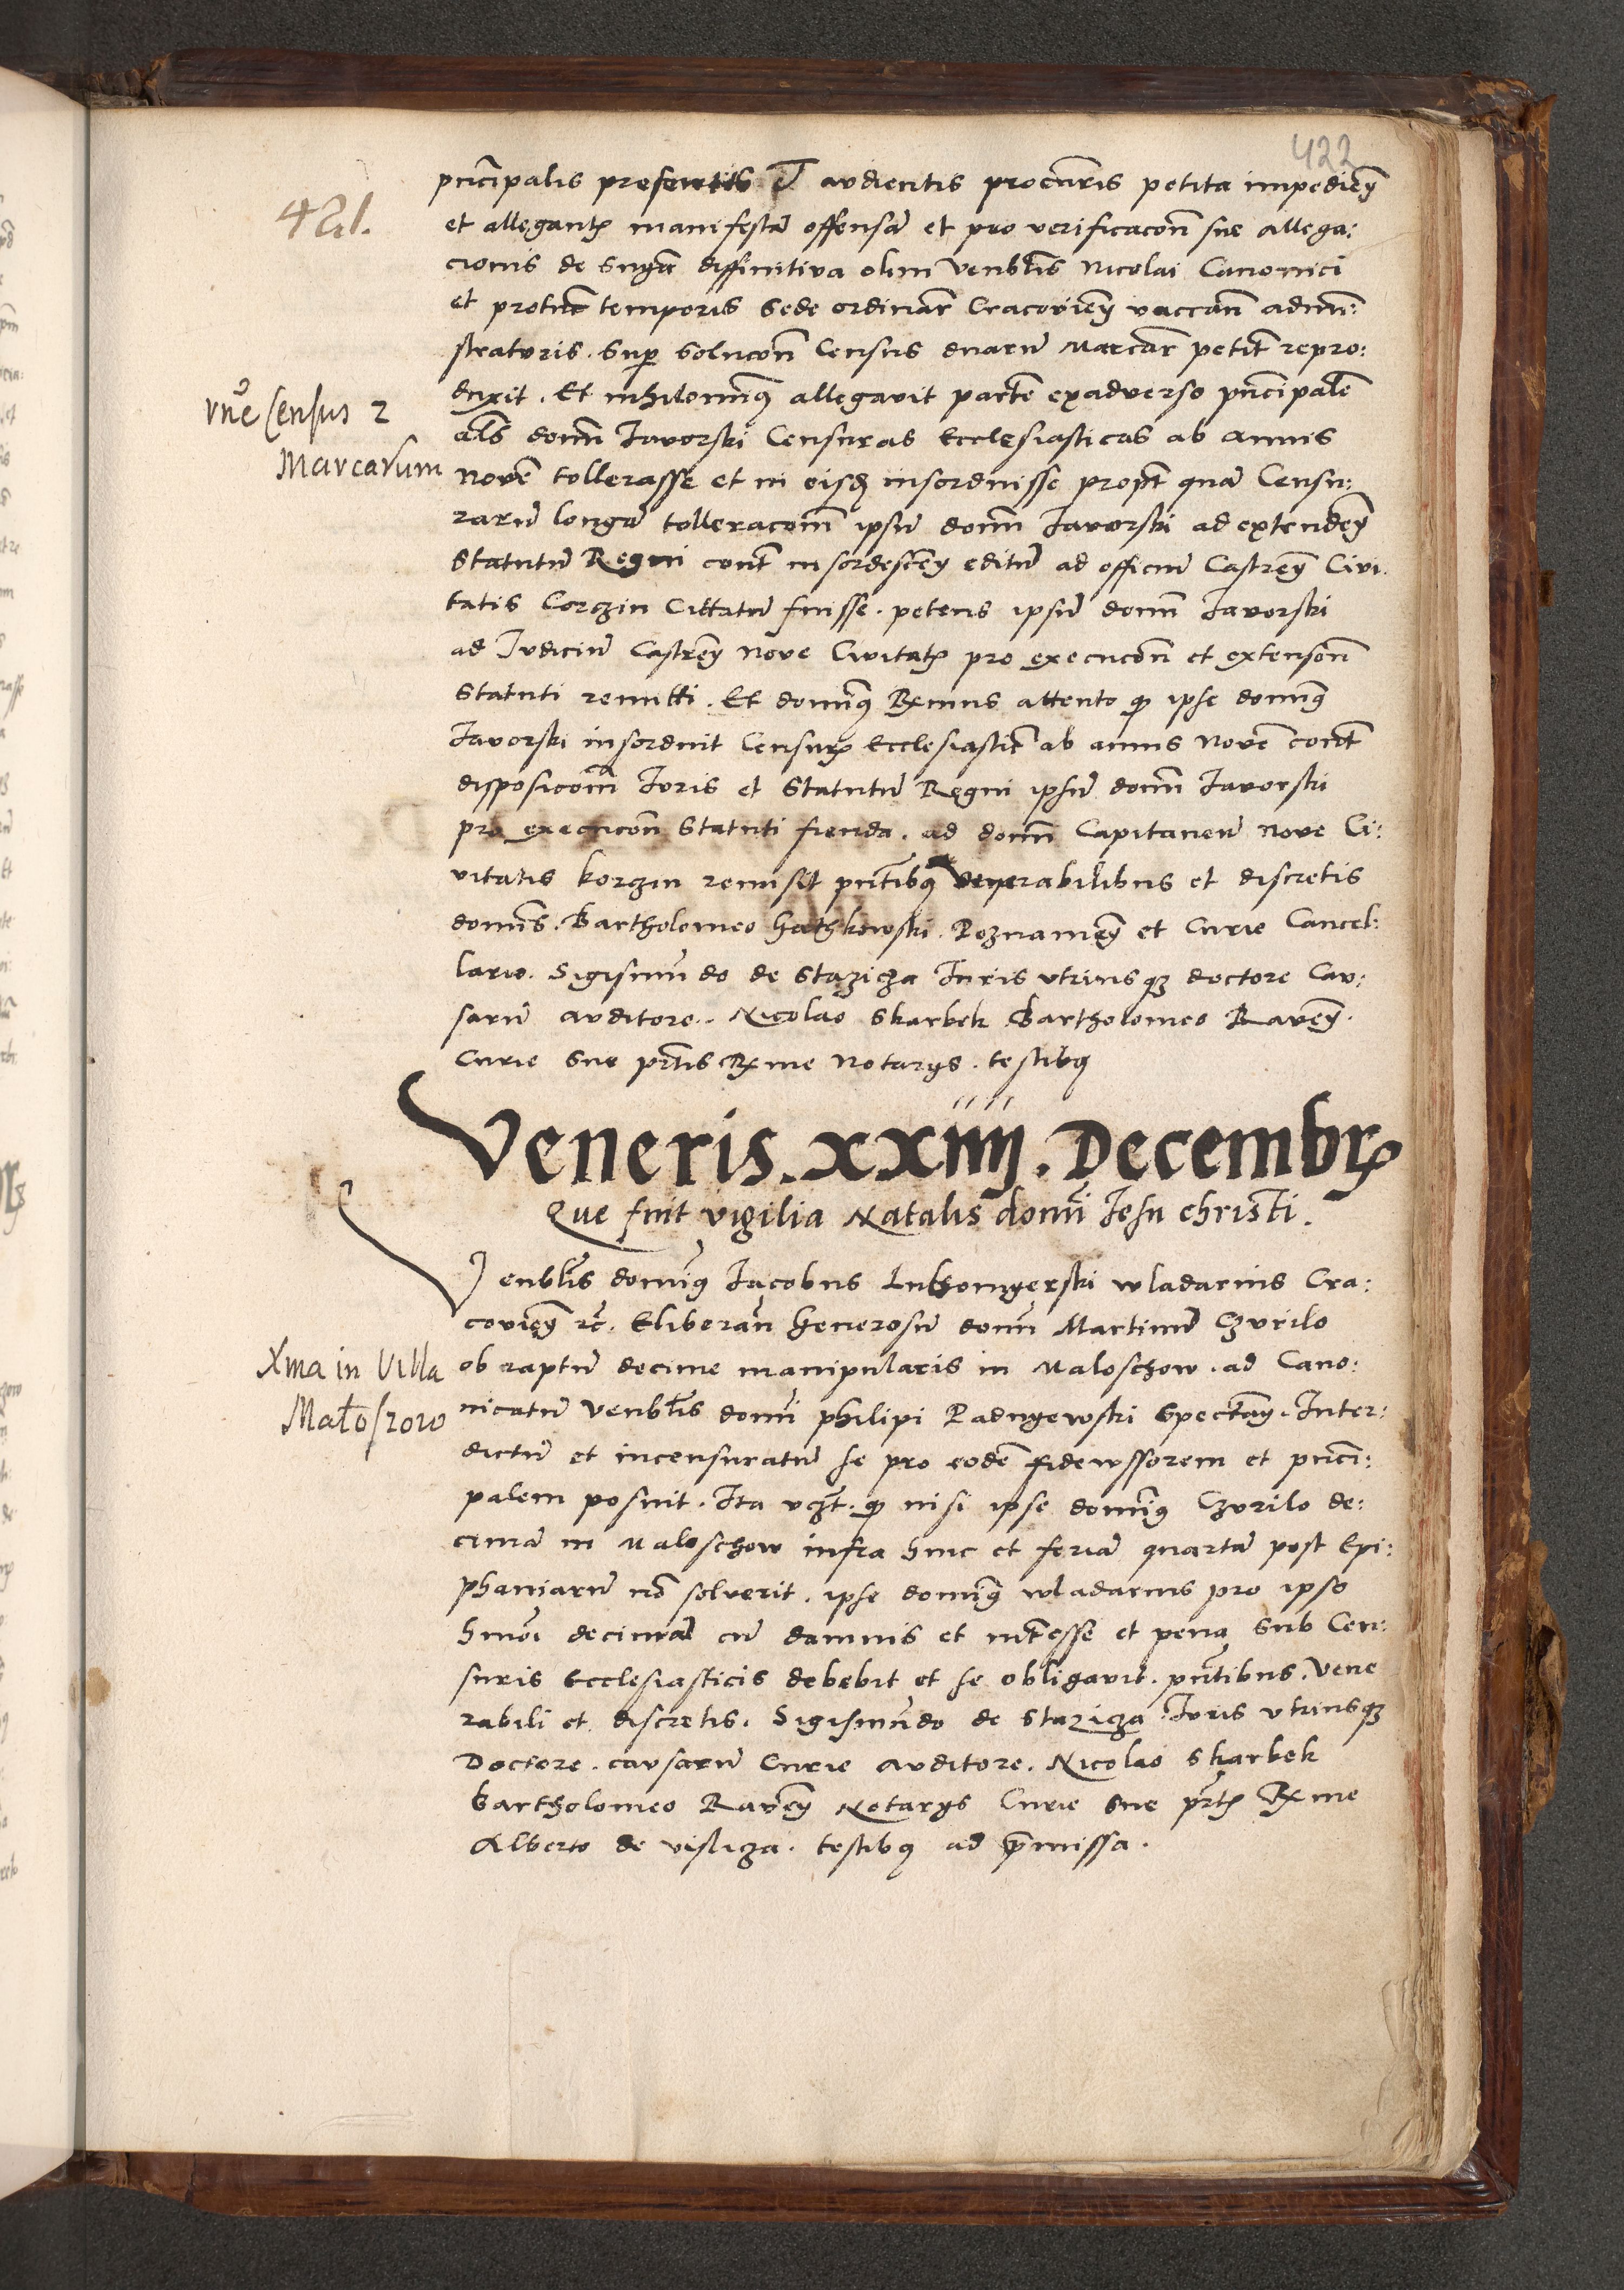 422
421.
principalis presentis et audientis procuratoris petita impedien̄
et allegant̄ manifestā offensā et pro verificacōn sue allega:
cionis de sn̄ya diffinitiva olim venblīs Nicolai Canonici
et protunc temporis sede ordinar̄ Cracovien̄ vaccan̄ admin:
stratoris. Sup solucōn Census duarū Marcar̄ petit̄ repro:
duxit. Et nihilomin9 allegavit partē exadverso pncipalē
vn̄e Census 2
Marcarum
als domn̄ Javorski Censuras Ecclesiasticas ab annis
Novē tollerasse et in eisdē insorduisse propt quā Censu:
rarū longā tolleracōm ipsū domn̄ Javorski ad extenden̄
Statutū Regni cont̄ insordescen̄ editū ad officiū Castren̄ Civi:
tatis Corczin Cittatū fuisse. petens ipsū domn̄ Javorski
ad Judiciū Castren̄ Nove Civitat̄ pro execucōn et extensōn
Statuti remitti. Et domin9 Rxmus attento q ipse domin9
Javorski insorduit Censur̄ Ecclesiastic̄ ab annis Novē cont̄
disposicōm Juris et Statutū Regni ipsū domn̄ Javorski
pro execucōn Statuti fienda. ad domn̄ Capitaneū Nove Ci:
vitatis korczin remisit pn̄tib9 venerabilibus et discretis
domīs. Bartholomeo Gathkowski. Poznanien̄ et Curie Cancel:
lario. Sigismūdo de Stazicza Juris vtriusqȝ doctore Cau:
sarū auditore. Nicolao Skarbek Bartholomeo Raven̄.
Curie sue pn̄tis Rxme Notarys. testib9
Veneris. xxiiij. Decembr̄
Que fuit vigilia Natalis domī Jesu christi.
Venblīs domin9 Jacobus Lubomyerski wladarius Cra:
covien̄ rc̄. Eliberan̄ Generosū domn̄ Martinū Czurilo
ob raptū decime manipularis in Maloschow. ad Cano:
Xma in Villa
Małoszow
nicatū venblīs domī philipi Padnyewski spectan̄. Inter:
dictū et incensuratū se pro eodē fidewssorem et pnci:
palem posuit. Ita vcȝt. q nisi ipse domin9 Czurilo de:
cimā in Maloschow infra hinc et feriā quartā post Epi:
phaniarū nō solverit. ipse domin9 wladarius pro ipso
hmōi decimā cū damnis et intesse et pena sub Cen:
suris Ecclesiasticis debebit et se obligavit. pn̄tibus. Vene
rabili et discretis. Sigismūdo de Stazicza Juris vtriusqȝ
Doctore. causarū Curie auditore. Nicolao Skarbek
Bartholomeo Raven̄ Notarys Curie sue pn̄t̄ Rxme
Alberto de visliczа. testib9 ad p̄missa.